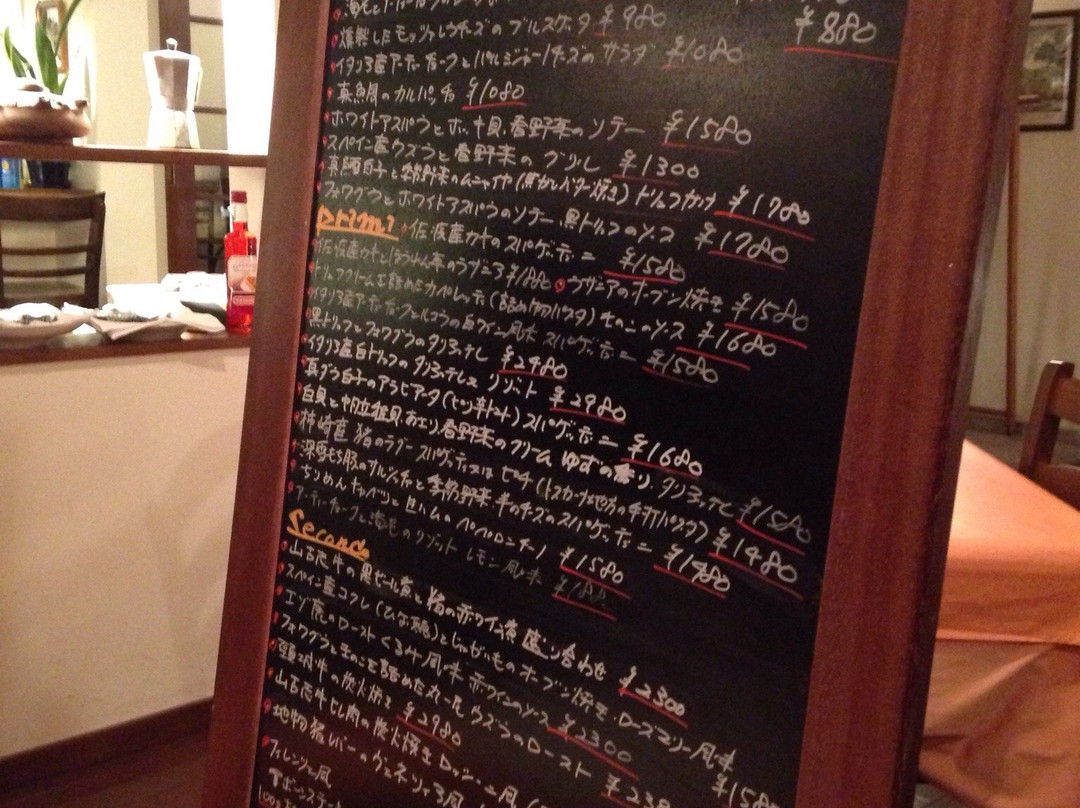 ¥880
燻製したモッツァレラチーズのブルスケッタ ¥980
イタリア産アーティチョークとパルミジャーノチーズのサラダ ¥1080
真鯛のカルパッチョ ¥1080
ホワイトアスパラとホッキ貝、春野菜のソテー ¥1580
スペイン産ウズラと春野菜のグリル ¥1300
真鱈白子と季節野菜のムニャイヤ(焦がしバター焼き)トリュフがけ ¥1780
フォワグラとホワイトアスパラのソテー 黒トリュフのソース ¥1780
Primi
佐渡産カキのスパゲッティーニ ¥1580
佐渡産カキとほうれん草の ラザニアのオーブン焼き ¥1580
トリュフクリームを詰めたカペレッティ(詰め物パスタ)きのこのソース ¥1680
イタリア産アーティチョークと の白ワイン風味 スパゲッティーニ ¥1580
黒トリュフとフォワグラのタリオリーニ ¥2480
イタリア産白トリュフのタリオリーニ又はリゾット ¥2980
真ダラ白子のアラビアータ(ピリ辛トマト)スパゲッティーニ ¥1680
白貝と帆立稚貝、あさり、春野菜のクリーム ゆずの香り タリアッテレ ¥1580
柿崎産 猪のラグー スパゲッティ又はピチ(トスカーナ地方の手打ちパスタ) ¥1480
深雪もち豚の と季節野菜 羊のチーズのスパゲッティーニ ¥1480
ちりめんキャベツと生ハムのペペロンチーノ ¥1580
アーティチョークと海老のリゾット レモン風味
Secondo
山古志牛の黒ビール煮と猪の赤ワイン煮 盛り合わせ ¥2300
スペイン産コクレ(ひな鶏)とじゃがいものオーブン焼き ローズマリー風味 ¥158
エゾ鹿のロースト くるみ風味 赤ワインのソース ¥2300
フォワグラときのこを詰めた丸一尾ウズラのロースト ¥238
頸城牛の炭火焼き ¥2980
山古志牛ヒレ肉の炭火焼き ロッシーニ風
地物猪レバーのヴェネツィア風
フィレンツェ風
Tボーンステーキ
100g